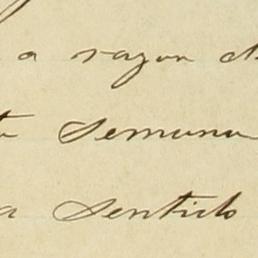 a razon de
semana
a sentido